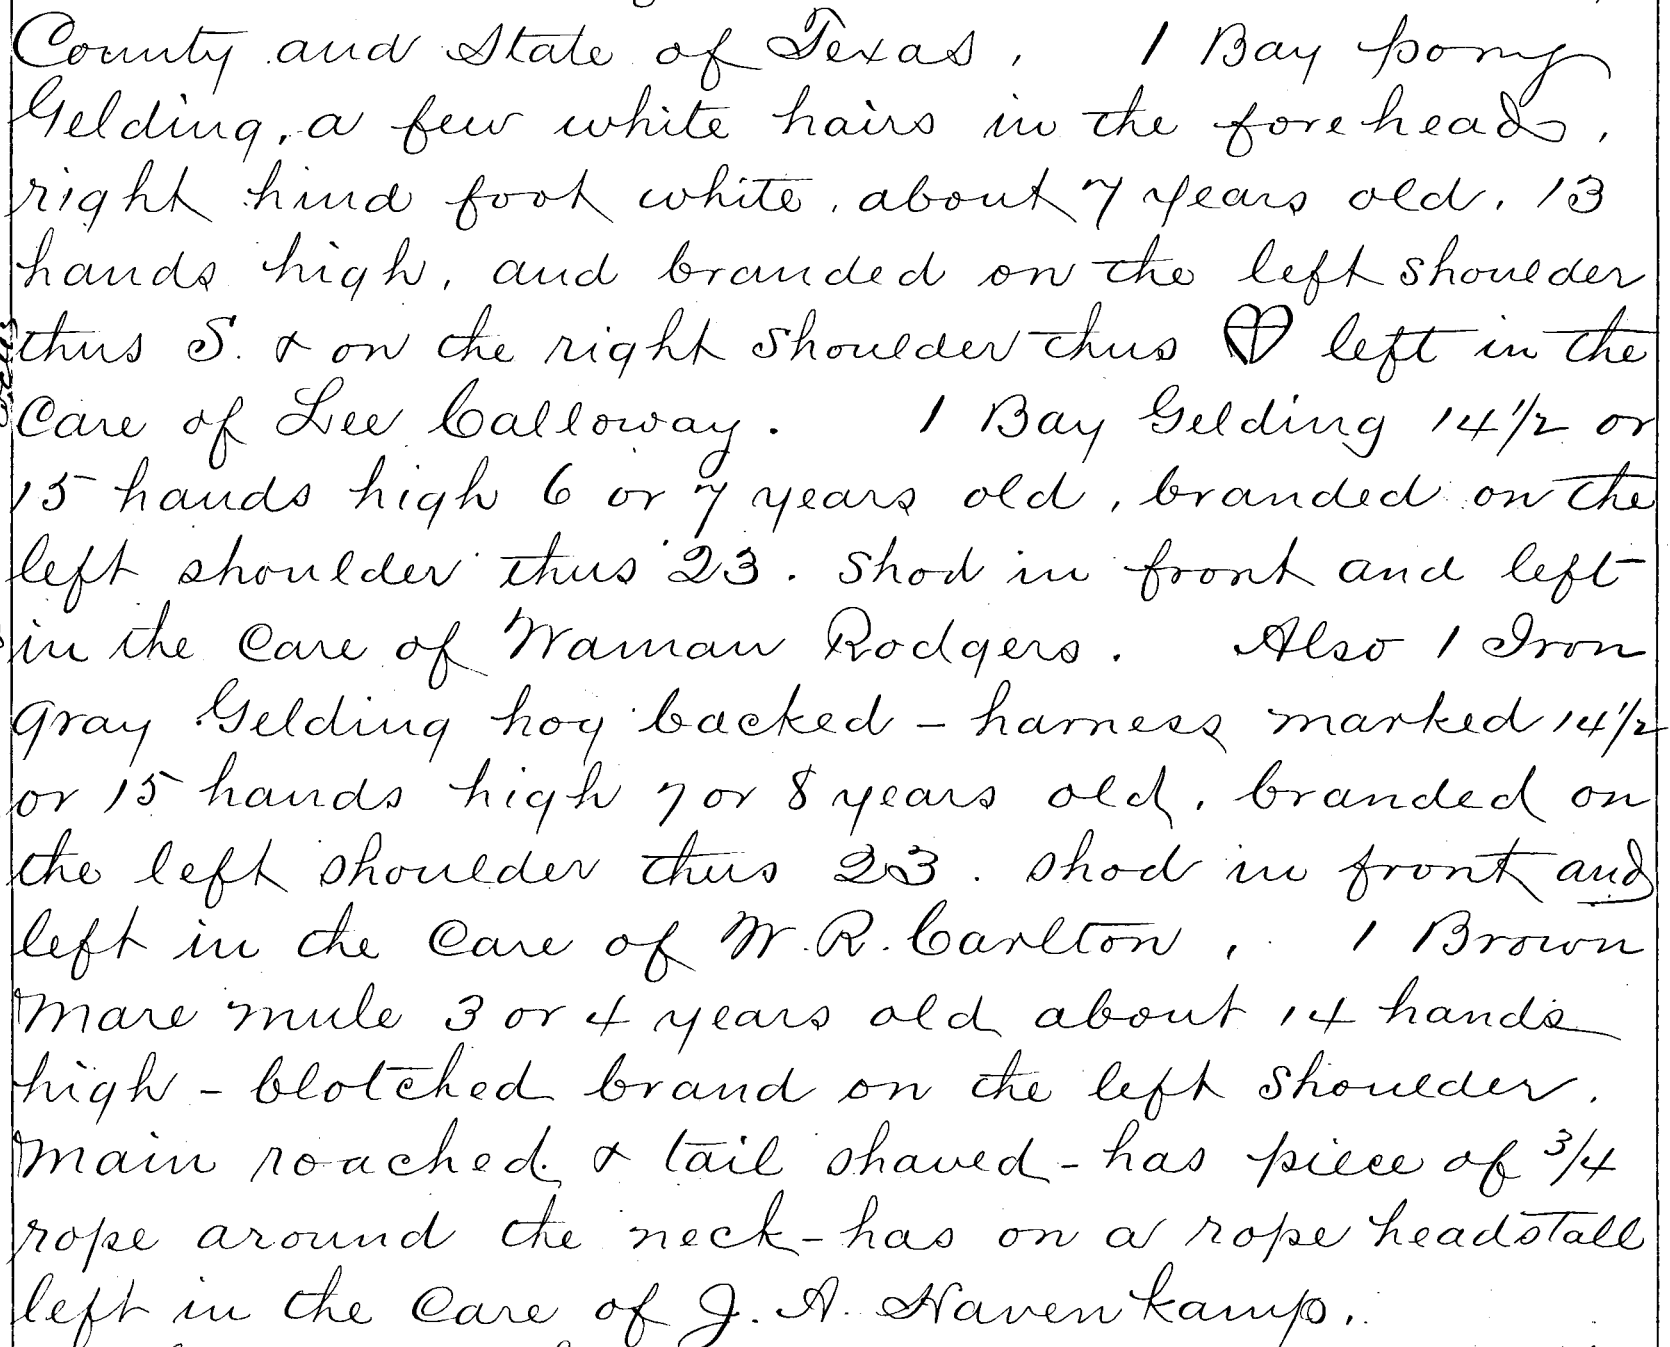 County and State of Texas, 1 Bay pony
Gelding, a few white hairs in the forehead,
right hind foot white, about 7 years old, 13
hands high, and branded on the left shoulder
thus S. & on the right shoulder thus left in the
Care of Lee Calloway. 1 Bay Gelding 14 1/2 or
15 hands high 6 or 7 years old, branded on the
left shoulder thus 23. Shod in front and left
in the Care of Waman Rodgers. Also 1 Iron
Gray Gelding hog backed - harness marked 14 1/2
or 15 hands high 7 or 8 years old, branded on
the left shoulder thus 23. shod in front and
left in the Care of W. R. Carlton, 1 Brown
Mare mule 3 or 4 years old about 14 hands
high - blotched brand on the left shoulder.
Main roached & tail shaved - has piece of 3/4
rope around the neck - has on a rope headstall
left in the Care of J. A. Havenkamp.